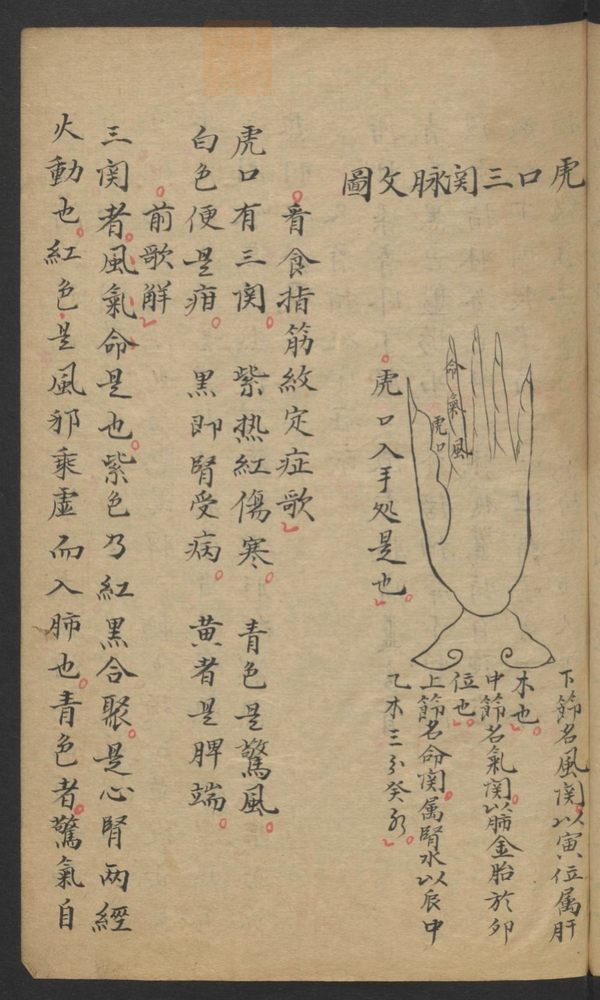 虎口三関脉文圖
命氣風
虎口
下節名風関以寅位属肝
木也
中節名氣関以肺金胎於卯
位也
上節名命関属腎水以辰中
乙木三分癸水
虎口入手処是也
看食指筋紋定症歌
虎口有三関 紫热紅傷寒 青色是驚風
白色便是疳 黑即腎受病 黄者是脾端
前歌解
三関者風氣命是也紫色乃紅黑合聚是心腎两經
火動也紅色是風邪乘虛而入肺也青色者驚氣自